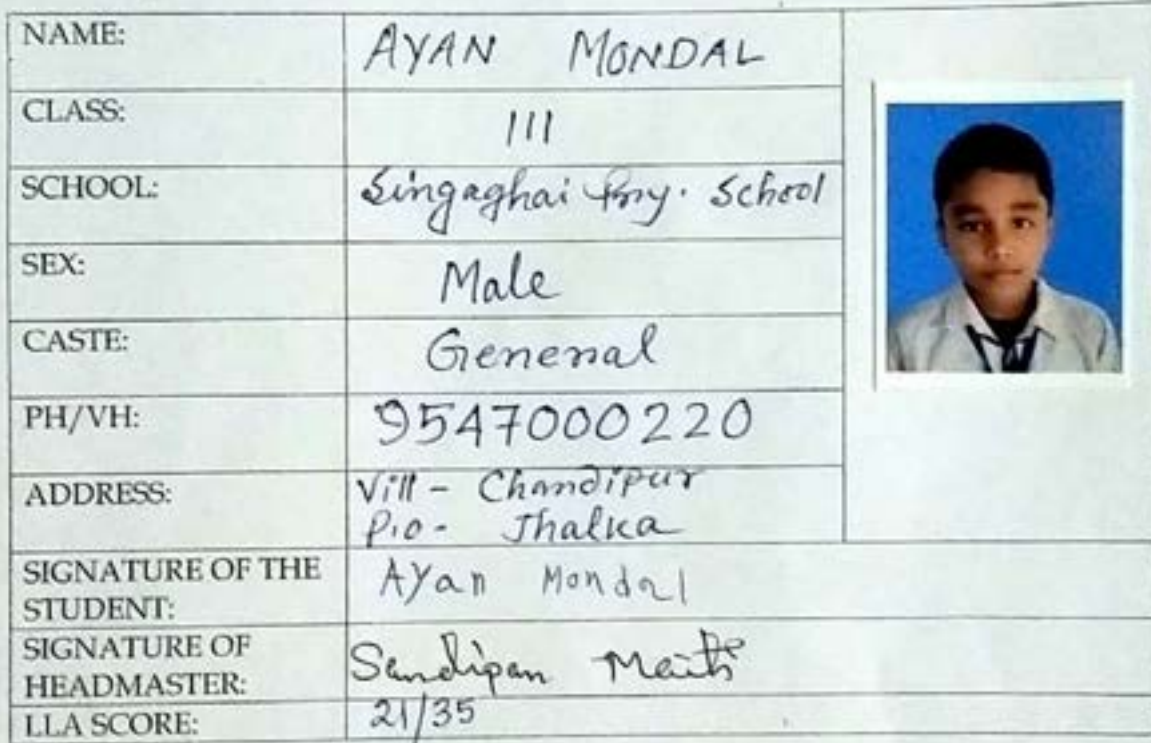 NAME: AYAN MONDAL
CLASS: III
SCHOOL: Singaghai Pmy. School
SEX: Male
CASTE: General
PH/VH: 9547000220
ADDRESS: Vill - Chandipur
P.O - Jhalka
SIGNATURE OF THE STUDENT: Ayan Mondal
SIGNATURE OF HEADMASTER: Sandipan Maiti
LLA SCORE: 21/35